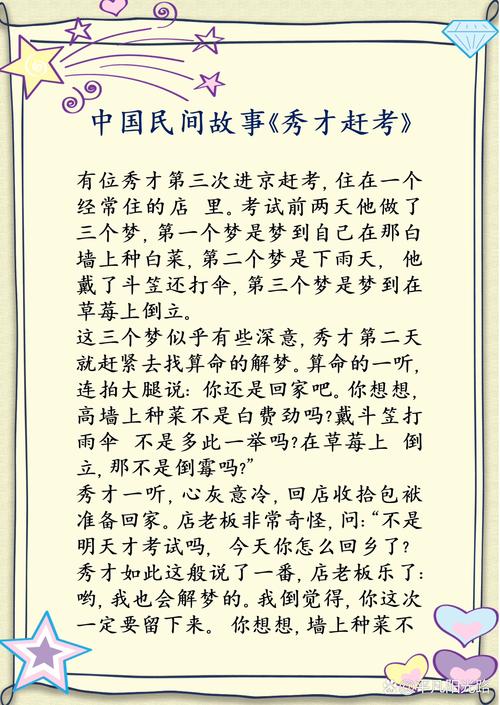 中国民间故事《秀才赶考》
有位秀才第三次进京赶考,住在一个
经常住的店 里。考试前两天他做了
三个梦,第一个梦是梦到自己在那白
墙上种白菜,第二个梦是下雨天, 他
戴了斗笠还打伞,第三个梦是梦到在
草莓上倒立。
这三个梦似乎有些深意,秀才第二天
就赶紧去找算命的解梦。算命的一听,
连拍大腿说: 你还是回家吧。你想想,
高墙上种菜不是白费劲吗?戴斗笠打
雨伞 不是多此一举吗?在草莓上 倒
立,那不是倒霉吗?”
秀才一听,心灰意冷,回店收拾包袱
准备回家。店老板非常奇怪,问:“不是
明天才考试吗, 今天你怎么回乡了?
秀才如此这般说了一番,店老板乐了:
哟,我也会解梦的。我倒觉得,你这次
一定要留下来。 你想想,墙上种菜不
@平凡阳光路